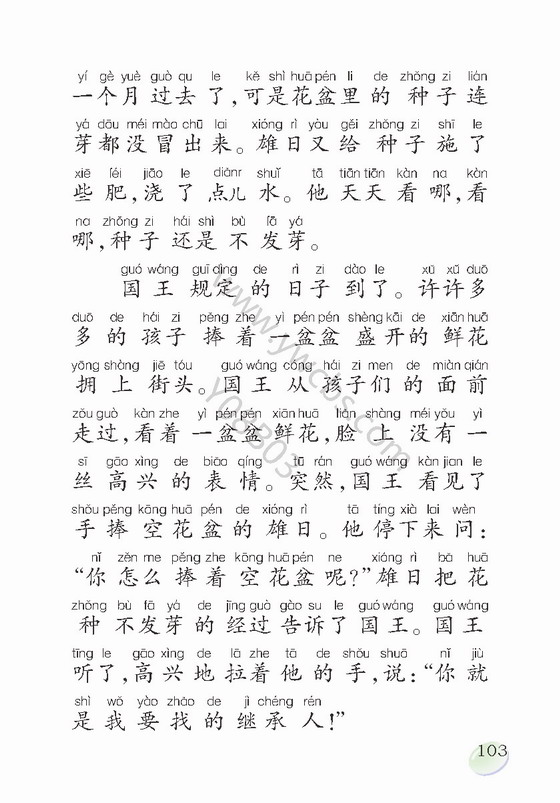 yí gè yuè guò qu le kě shì huā pén li de zhǒng zi lián
一个月过去了，可是花盆里的种子连
yá dōu méi mào chū lai xióng rì yòu gěi zhǒng zi shī le
芽都没冒出来。雄日又给种子施了
xiē féi jiāo le diǎnr shuǐ tā tiān tiān kàn na kàn
些肥，浇了点儿水。他天天看哪，看
na zhǒng zi hái shì bù fā yá
哪，种子还是不发芽。
guó wáng guī dìng de rì zi dào le xǔ xǔ duō
国王规定的日子到了。许许多
duō de hái zi pěng zhe yì pén pén shèng kāi de xiān huā
多的孩子捧着一盆盆盛开的鲜花
yōng shàng jiē tóu guó wáng cóng hái zi men de miàn qián
拥上街头。国王从孩子们的面前
zǒu guò kàn zhe yì pén pén xiān huā liǎn shàng méi yǒu yì
走过，看着一盆盆鲜花，脸上没有一
sī gāo xìng de biǎo qíng tū rán guó wáng kàn jian le
丝高兴的表情。突然，国王看见了
shǒu pěng kōng huā pén de xióng rì tā tíng xià lai wèn
手捧空花盆的雄日。他停下来问：
nǐ zěn me pěng zhe kōng huā pén ne xióng rì bǎ huā
“你怎么捧着空花盆呢？”雄日把花
zhǒng bù fā yá de jīng guò gào su le guó wáng guó wáng
种不发芽的经过告诉了国王。国王
tīng le gāo xìng de lā zhe tā de shǒu shuō nǐ jiù
听了，高兴地拉着他的手，说：“你就
shì wǒ yào zhǎo de jì chéng rén
是我要找的继承人！”
www.ywcbs.com
Y04B03
103